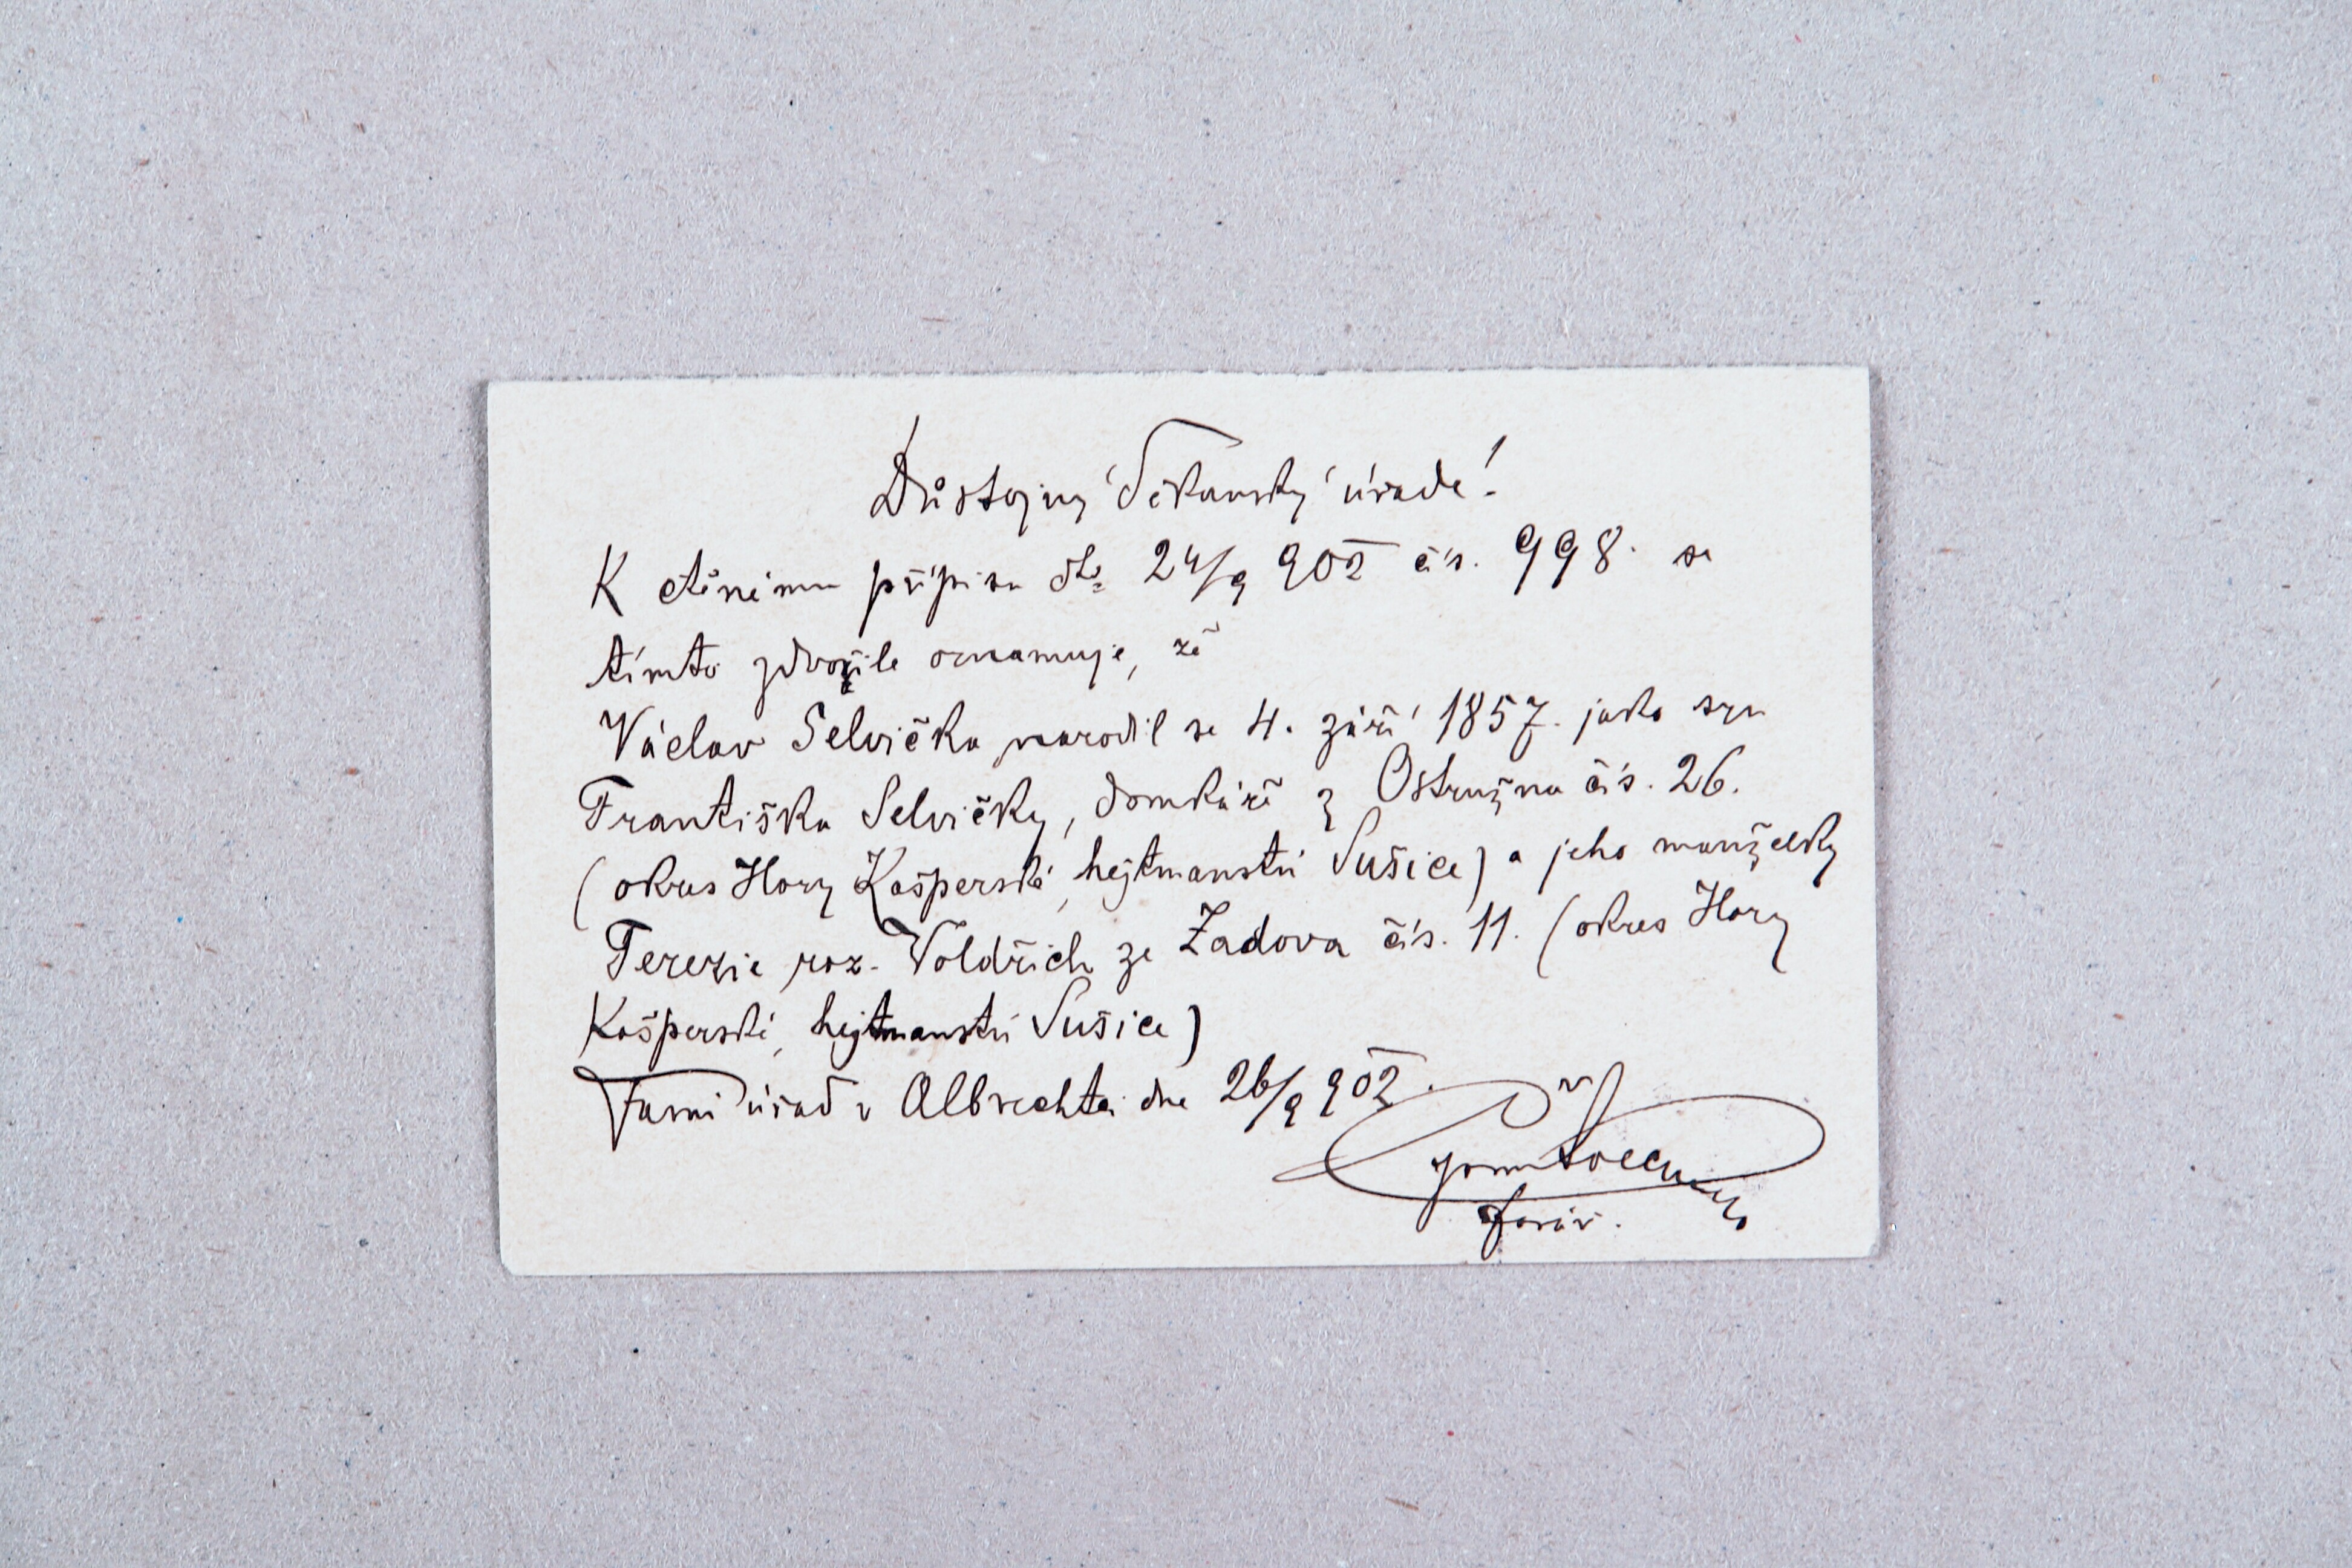 Důstojný Děkanský úřade!
K ctěnému přípisu dto 24/9 902 čís. 998. se
tímto zdvořile oznamuje, že
Václav Selvička narodil se 4. září 1857. jako syn
Františka Selvičky, domkáře z Ostružna čís. 26.
(okres Hory Kašperské, hejtmanství Sušice) a jeho manželky
Terezie roz. Voldřich ze Zadova čís. 11. (okres Hory
Kašperské, hejtmanství Sušice)
Farní úřad v Albrechtci dne 26/9 902.
farář.